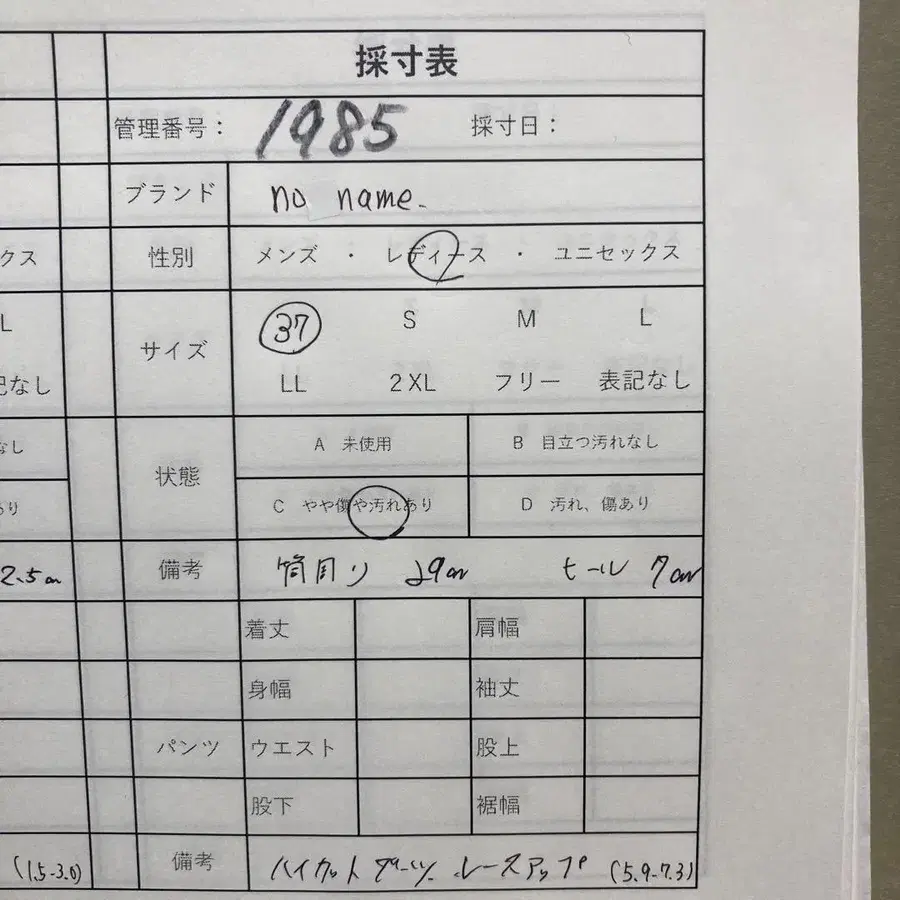 採寸表
管理番号： 1985 採寸日：
ブランド no name.
クス 性別 メンズ ・ レディース ・ ユニセックス
L サイズ 37 S M L
記なし LL 2XL フリー 表記なし
なし 状態 A 未使用 B 目立つ汚れなし
あり C やや傷や汚れあり D 汚れ、傷あり
2.5cm 備考 筒周り 29cm ヒール 7cm
着丈 肩幅
身幅 袖丈
パンツ ウエスト 股上
股下 裾幅
(1.5-3.0) 備考 ハイカット ブーツ レースアップ (5.9-7.3)